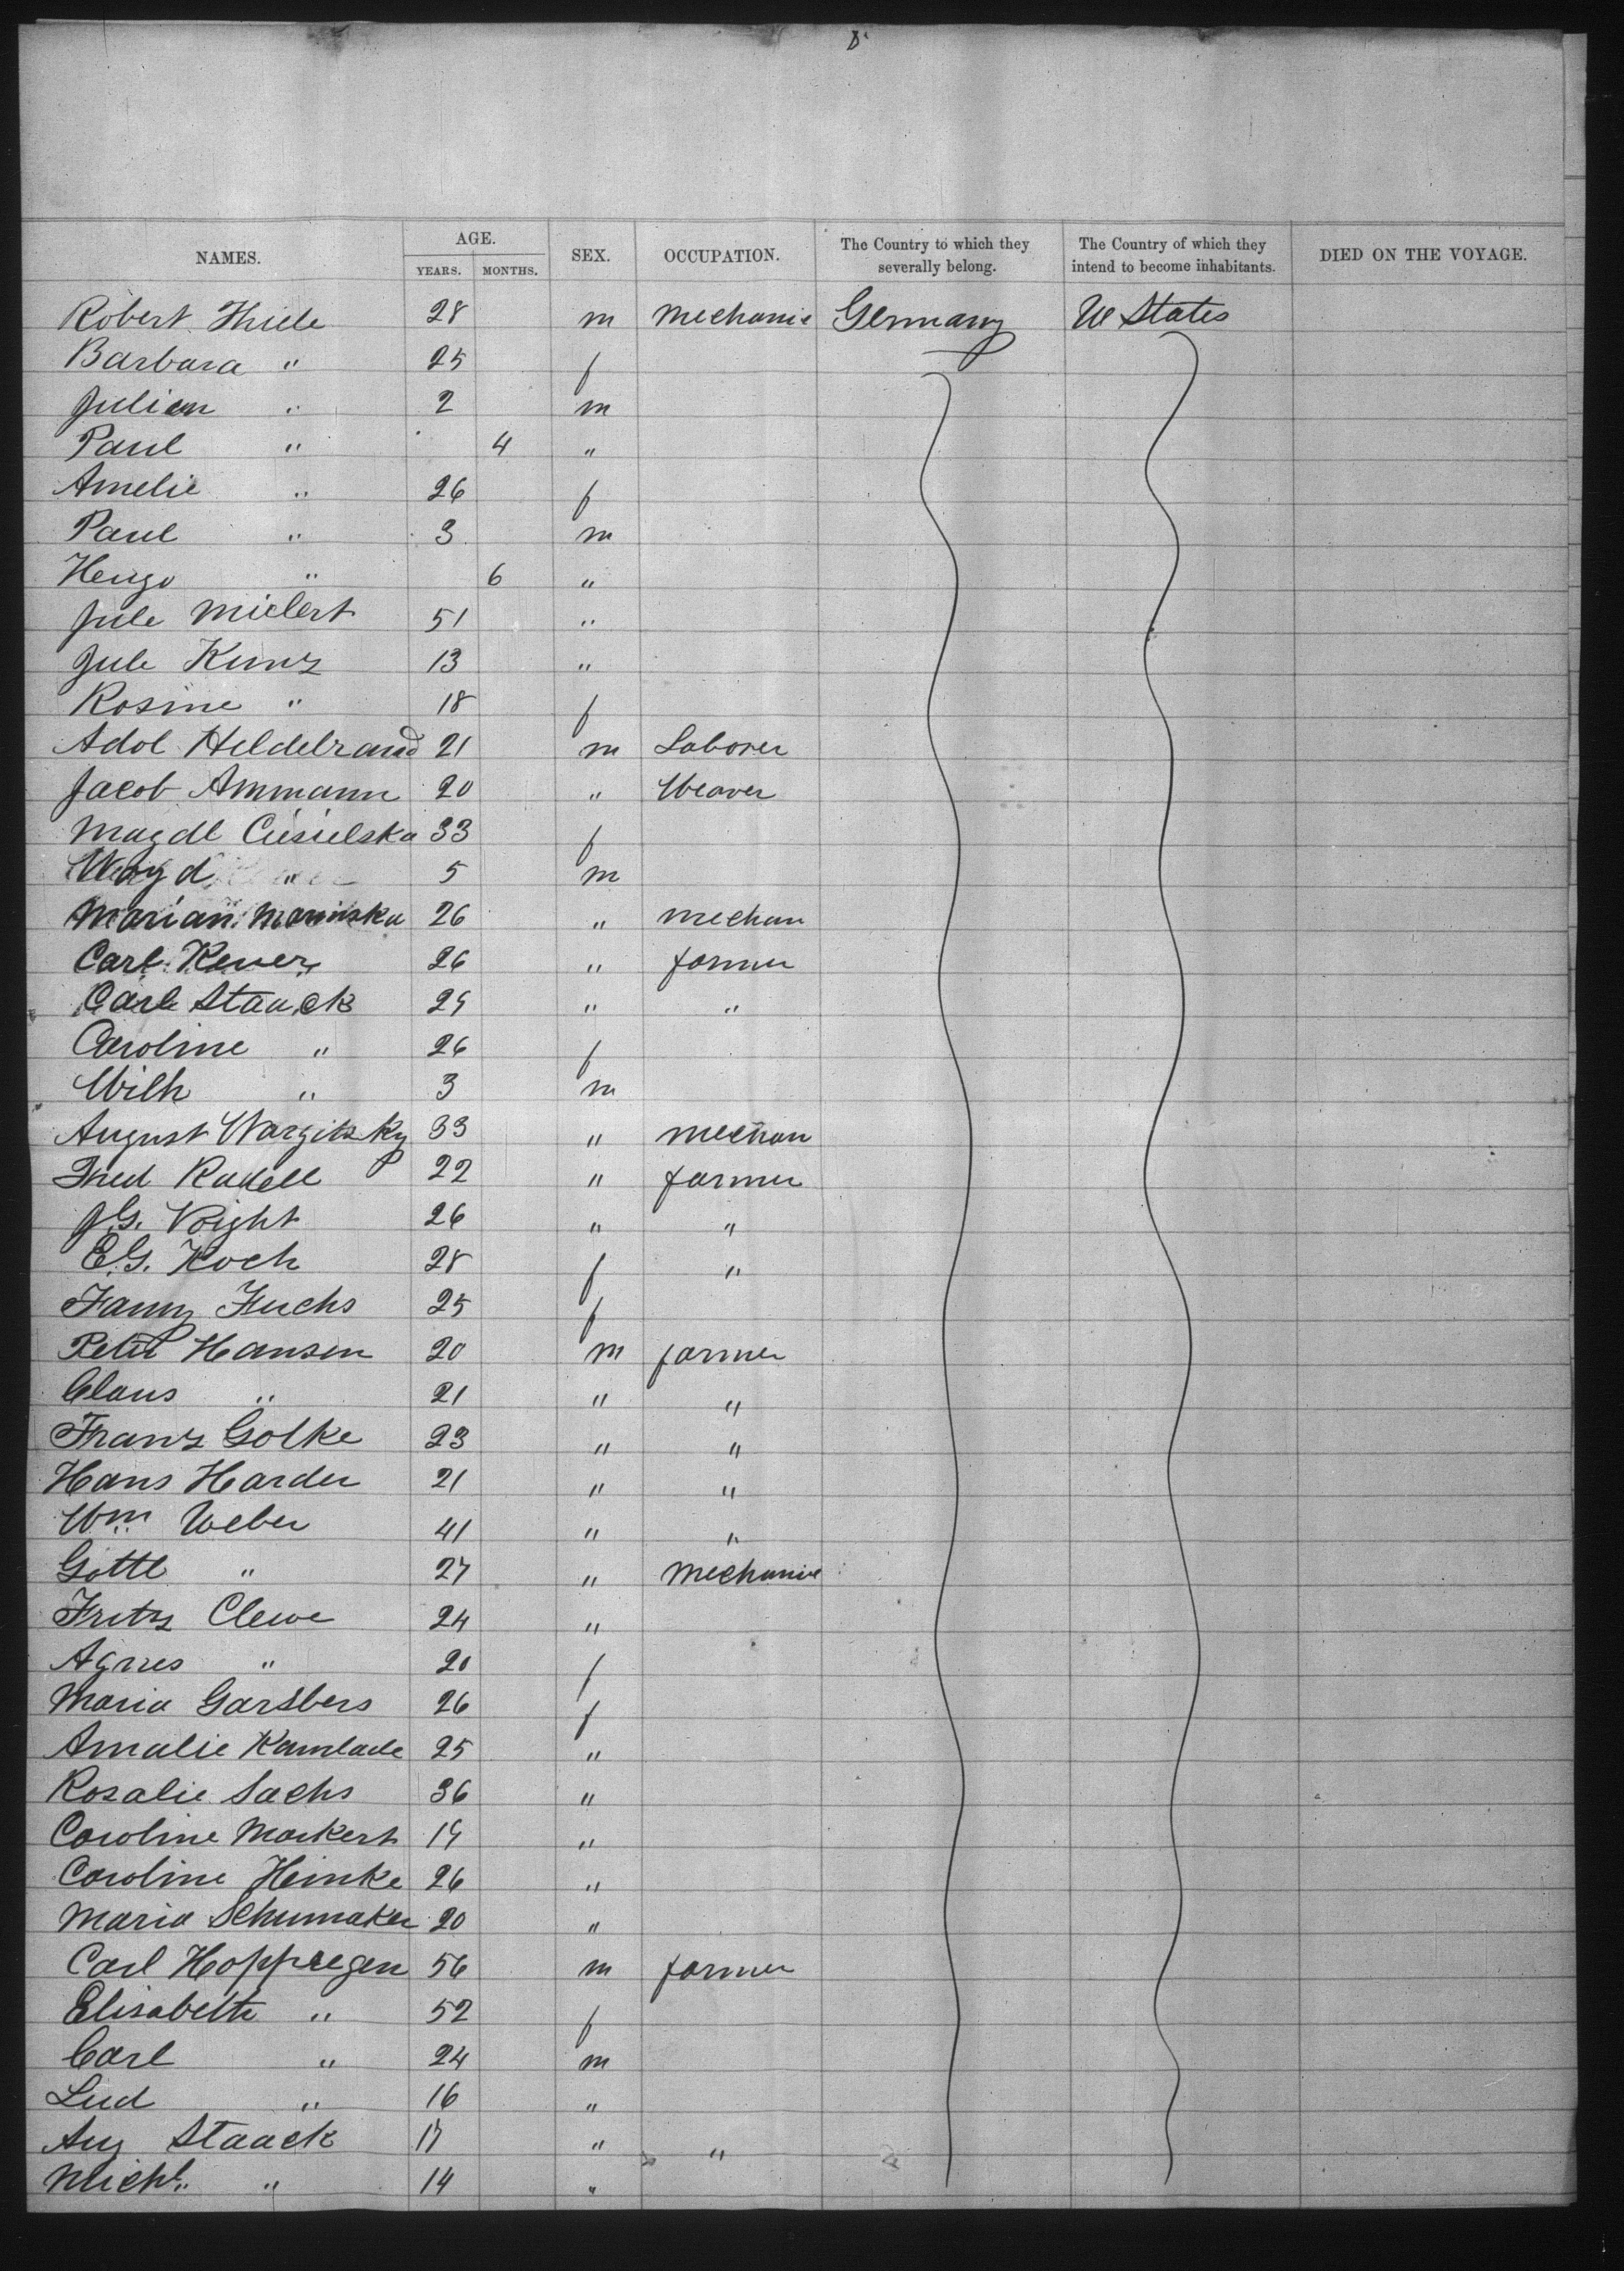 NAMES. AGE. SEX. OCCUPATION. The Country to which they severally belong. The Country of which they intend to become inhabitants. DIED ON THE VOYAGE.
YEARS. MONTHS.
Robert Thiele 28 m Mechanic Germany U States
Barbara " 25 f
Julian " 2 m
Paul " 4 "
Amelie " 26 f
Paul " 3 m
Hugo " 6 "
Jule Mielert 51 "
Jule Kunz 13 "
Rosine " 18 f
Adol Hildebrand 21 m Laborer
Jacob Ammann 20 " Weaver
Magdl Ciesielska 33 f
Woyd " 5 m
Marian 26 " Mechan
Carl 26 " farmer
Carl Staack 29 " "
Caroline " 26 f
Wilh " 3 m
August Wargitzky 33 " Mechan
Fred Radell 22 " farmer
J.G. Voight 26 " "
E.G. Koch 28 f "
Fanny Fuchs 25 f
Peter Hansen 20 m farmer
Claus " 21 " "
Franz Golke 23 " "
Hans Harder 21 " "
Wm Weber 41 " "
Gottl " 27 " Mechanic
Fritz Clewe 24 "
Agnes " 20 f
Maria Garsbers 26 f
Amalie 25 "
Rosalie Sachs 36 "
Caroline Markert 19 "
Caroline Heinke 26 "
Maria Schumaker 20 "
Carl Hoppregen 56 m farmer
Elisabeth " 52 f
Carl " 24 m
Lud " 16 "
Aug Staack 17 " "
Michl " 14 "